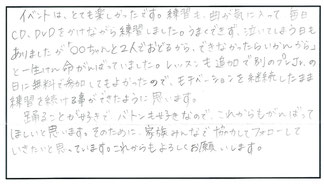 イベントは、とても楽しかったです。練習も、曲が気に入って毎日
CD、DVDをかけながら練習しました。うまくできず、泣いてしまう日も
ありましたが「〇〇ちゃんと2人でおどるから、できなかったらいかんから」
と一生けん命がんばっていました。レッスンも追加で別の
日に無料で参加してもよかったので、モチベーションを継続したまま
練習を続ける事ができたように思います。
踊ることが好きで、バトンも好きなので、これからもがんばって
ほしいと思います。そのために、家族みんなで協力してフォローして
いきたいと思っています。これからもよろしくお願いします。